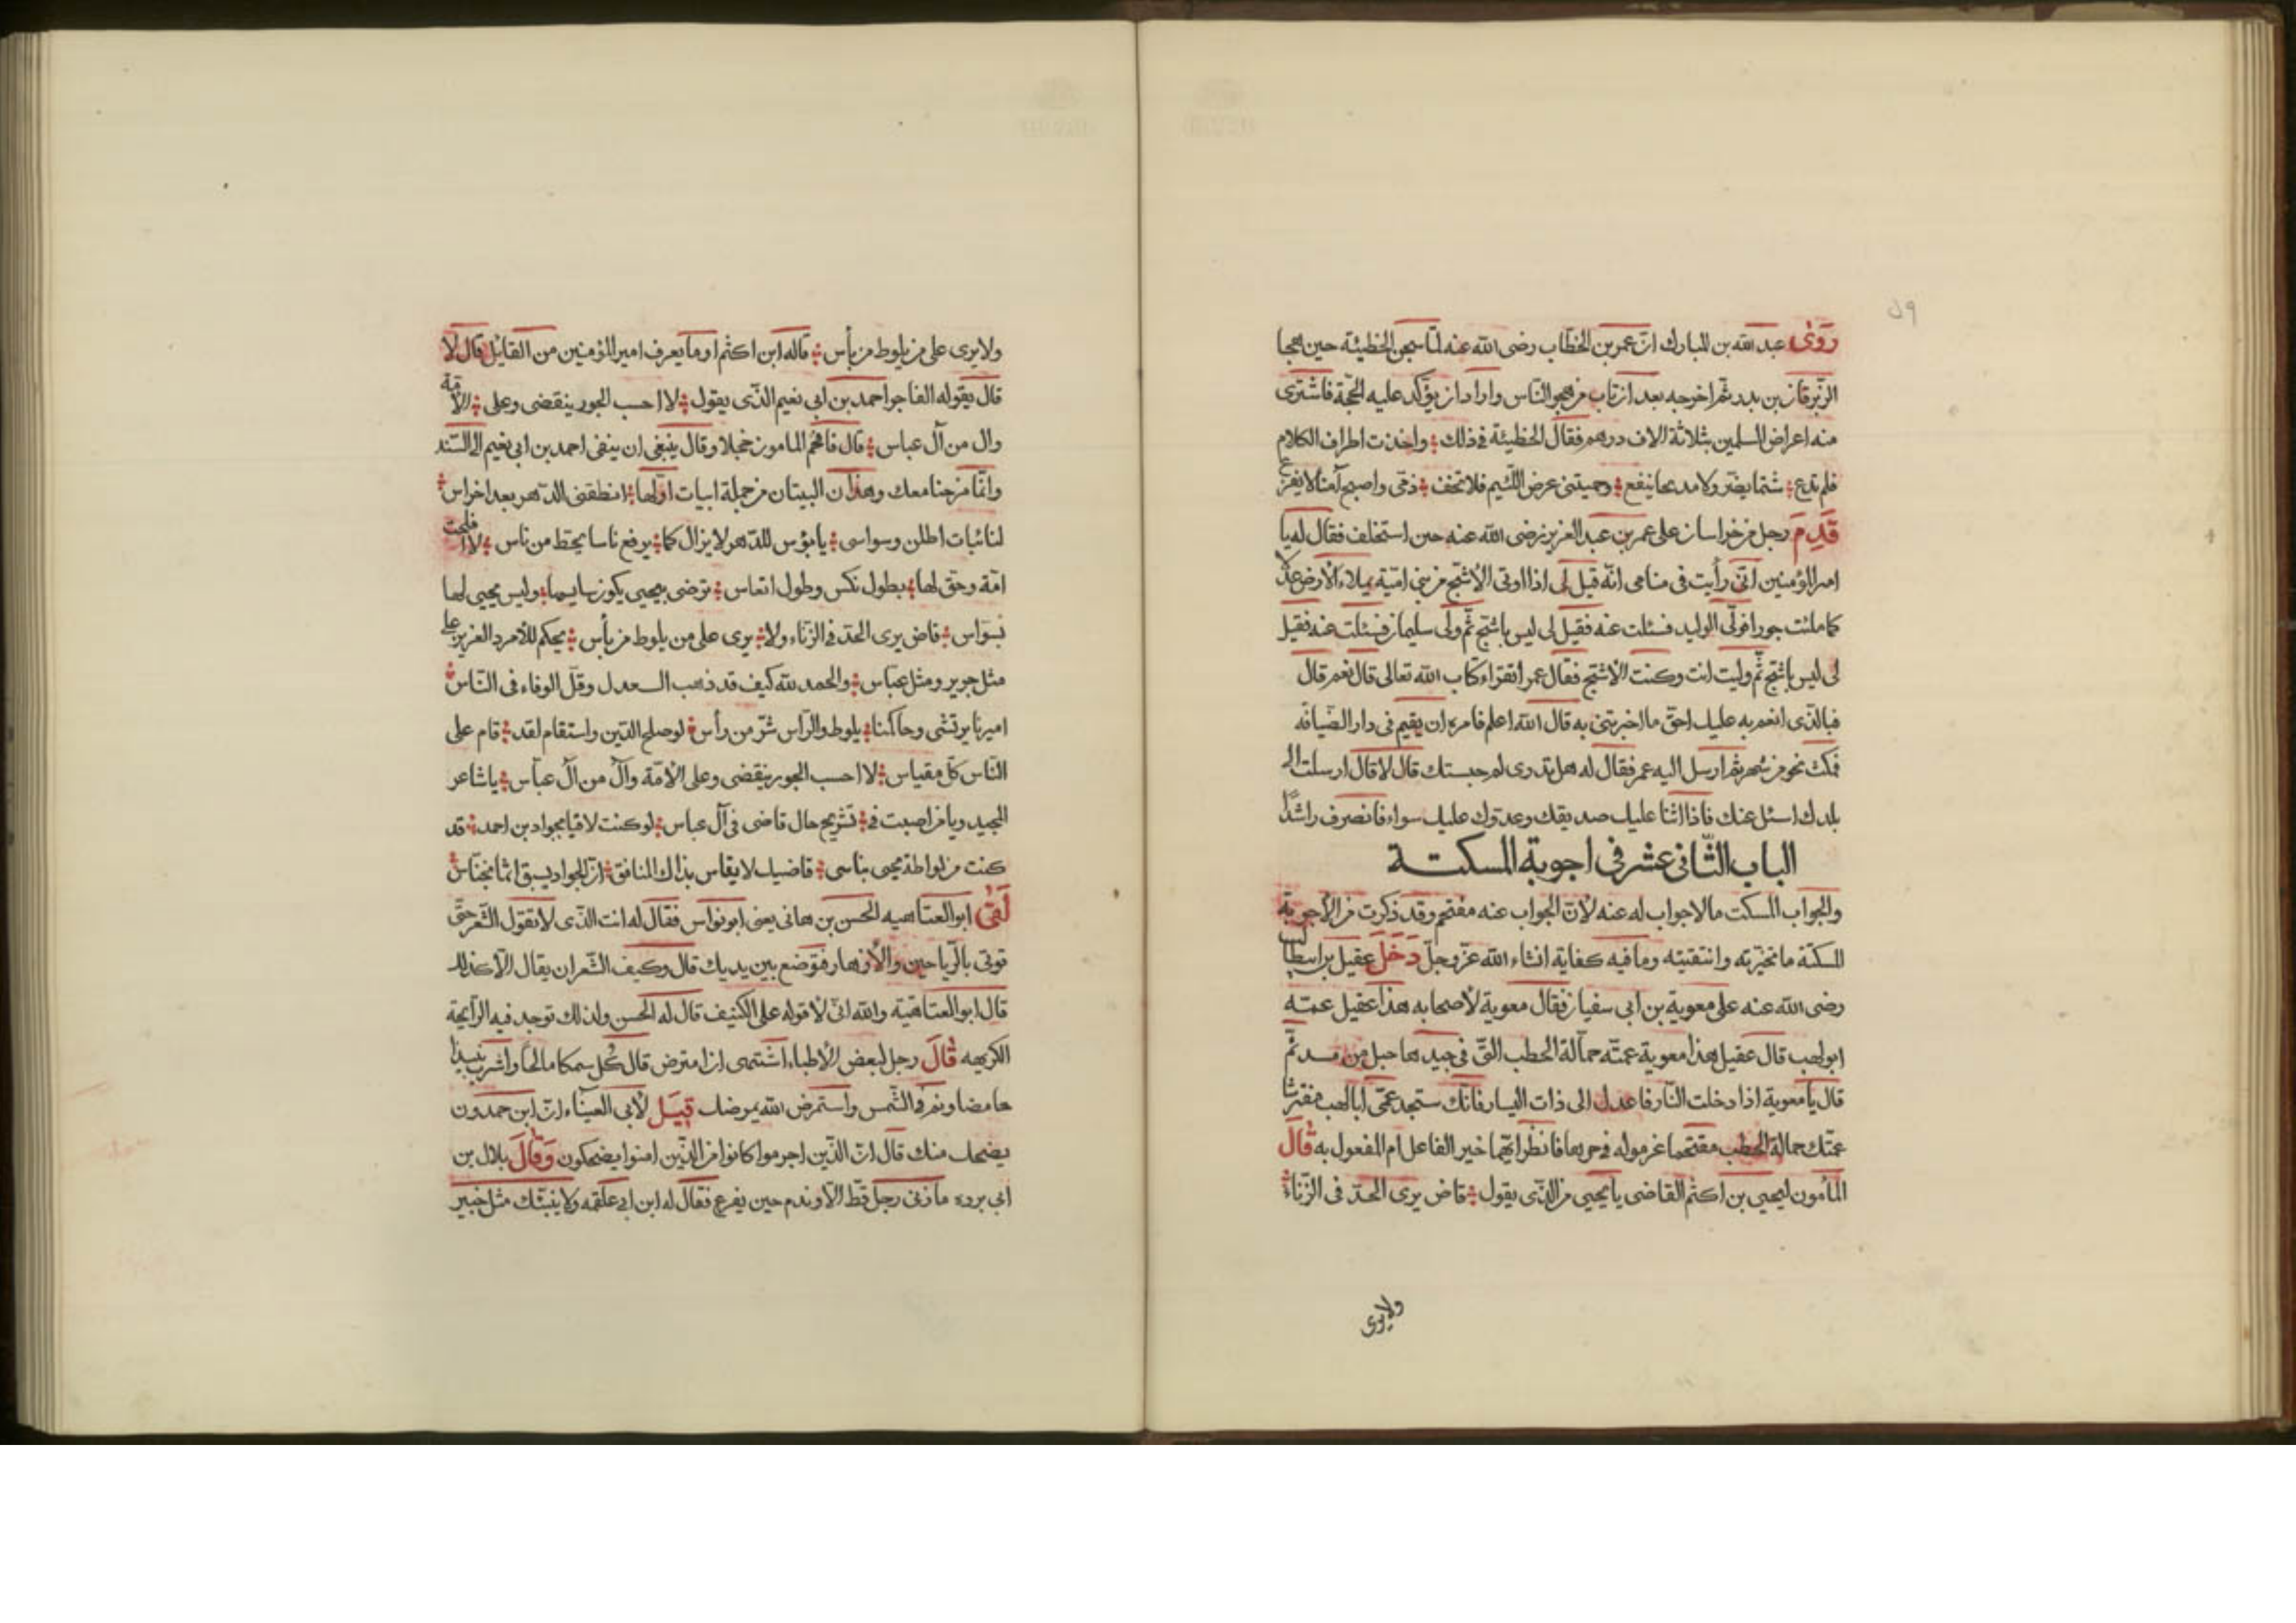 روى عبد الله بن المبارك ان عمر بن الخطاب رضى الله عنه لما سجن الخطيئة حين هجا
الزبرقان بن بدر ثم اخرجه بعد ان تاب من هجو الناس واراد ان يؤكد عليه الحجة فاشترى
منه اعراض المسلمين بثلاثة الاف درهم فقال الخطيئة فى ذلك واخذت اطراف الكلام
فلم تدع شتما يضر ولا مديحا ينفع وحميتنى عرض اللئيم فلا تخف ذمى واصبح آمنا لا يفزع
قدم رجل من خراسان على عمر بن عبد العزيز رضى الله عنه حين استخلف فقال له يا
امير المؤمنين انى رأيت فى منامى انه قيل لى اذا اوتى الاشج من بنى امية يملاء الارض عدلا
كما ملئت جورا فولى الوليد فسئلت عنه فقيل لى ليس باشج ثم ولى سليمان فسئلت عنه فقيل
لى ليس باشج ثم وليت انت وكنت الاشج فقال عمر اتقراء كتاب الله تعالى قال نعم قال
فبالذى انعم به عليك احق ما اخبرتنى به قال الله اعلم فامره ان يقيم فى دار الضيافه
فمكث نحو من شهر ثم ارسل اليه عمر فقال له هل تدرى لم حبستك قال لا قال ارسلت الى
بلدك اسئل عنك فاذا اثنا عليك صديقك وعدوك عليك سواء فانصرف راشدا
الباب الثانى عشر فى اجوبة المسكتة
والجواب المسكت ما لا جواب له عنه لان الجواب عنه مفتحم وقد ذكرت من الاجوبة
المسكتة ما تخيرته وانتقيته وما فيه كفاية انشاء الله عز وجل دخل عقيل بن ابيطالب
رضى الله عنه على معوية بن ابى سفيان فقال معوية لاصحابه هذا عقيل عمه
ابو لهب قال عقيل هذا معوية عمته حمالة الحطب التى فى جيدها حبل من مسد ثم
قال يا معوية اذا دخلت النار فاعدل الى ذات اليسار فانك ستجد عمى ابا لهب مفترشا
عمتك حمالة الحطب فانظر ايهما خير الفاعل ام المفعول به قال
المأمون ليحيى بن اكثم القاضى يا يحيى من الذى يقول قاض يرى الحد فى الزناء
ولا يرى
ولا يرى على من يلوط من بأس قاله ابن اكثم او ما يعرف امير المؤمنين من القائل قال لا
قال يقوله الفاجر احمد بن ابى نعيم الذى يقول لا احسب الجور ينقضى وعلى الامة
وال من آل عباس قال فافحم المامون خجلا وقال ينبغى ان ينفى احمد بن ابى نعيم الى السند
وانما مزحنا معك وهذان البيتان من جملة ابيات اولها انطقنى الدهر بعد اخراس
لنائبات اطلن وسواسى يا بؤس للدهر لا يزال كما يرفع ناسا يحط من ناس لا افلحت
امة وحق لها بطول نكس وطول اتعاس ترضى بيحيى يكون سايسها وليس يحيى لها
بسواس قاض يرى الحد فى الزناء ولا يرى على من يلوط من بأس يحكم للامرد الغرير على
مثل جرير ومثل عباس والحمد لله كيف قد ذهب العدل وقل الوفاء فى الناس
اميرنا يرتشى وحاكمنا يلوط والرأس شر من رأس لو صلح الدين واستقام لقد قام على
الناس كل مقياس لا احسب الجور ينقضى وعلى الامة وال من آل عباس يا شاعر
المجيد ويا من اصبت فى تشريح حال قاضى فى آل عباس لو كنت لاقيا بجواد بن احمد قد
كنت من لواطة يحيى بناسى قاضيك لا يقاس بذاك المنافق ان الجواد يسبق
لقى ابو العتاهيه الحسن بن هانى يعنى ابو نواس فقال له انت الذى لا تقول الشعر حتى
توتى بالرياحين والازهار فتوضع بين يديك قال وكيف الشعر ان يقال الا كذلك
قال ابو العتاهية والله انى لاقوله على الكنيف قال له الحسن ولذلك توجد فيه الرايحة
الكريهه قال رجل لبعض الاطباء اشتهى ان امترض قال كل سمكا مالحا واشرب نبيذا
حامضا ونم فى الشمس واستمرض الله يمرضك قيل لابى العيناء ان ابن حمدون
يضحك منك قال ان الذين اجرموا كانوا من الذين امنوا يضحكون وقال بلال بن
ابى برده ما زنى رجل قط الا وندم حين يفرغ فقال له ابن ابى علقمه ولا ينبئك مثل خبير